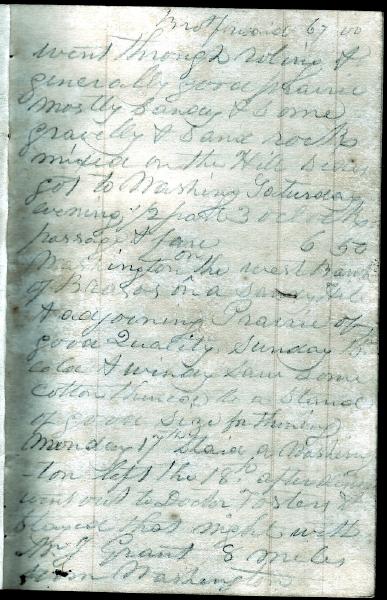 Brot forward 67 00
went through roling &
generally good prairie
mostly Sandy & some
gravelly & Sand rocks
mixed on the Hill Sides
got to Washing Saturday
evening 1/2 past 3 oclock
passage & fare 6 50
Washington on the west Bank
of Brasos on a Sandy Hill
& adjoining Prairie of
good Quality Sunday 16
cold & windy Saw Some
cotton the a Stand
of good Size for thining
Monday 17th Staid a Washing
ton left the 18th after
went out to Doctor Fosters &
Stayed that night with
Mr J Grant 8 miles
from Washington